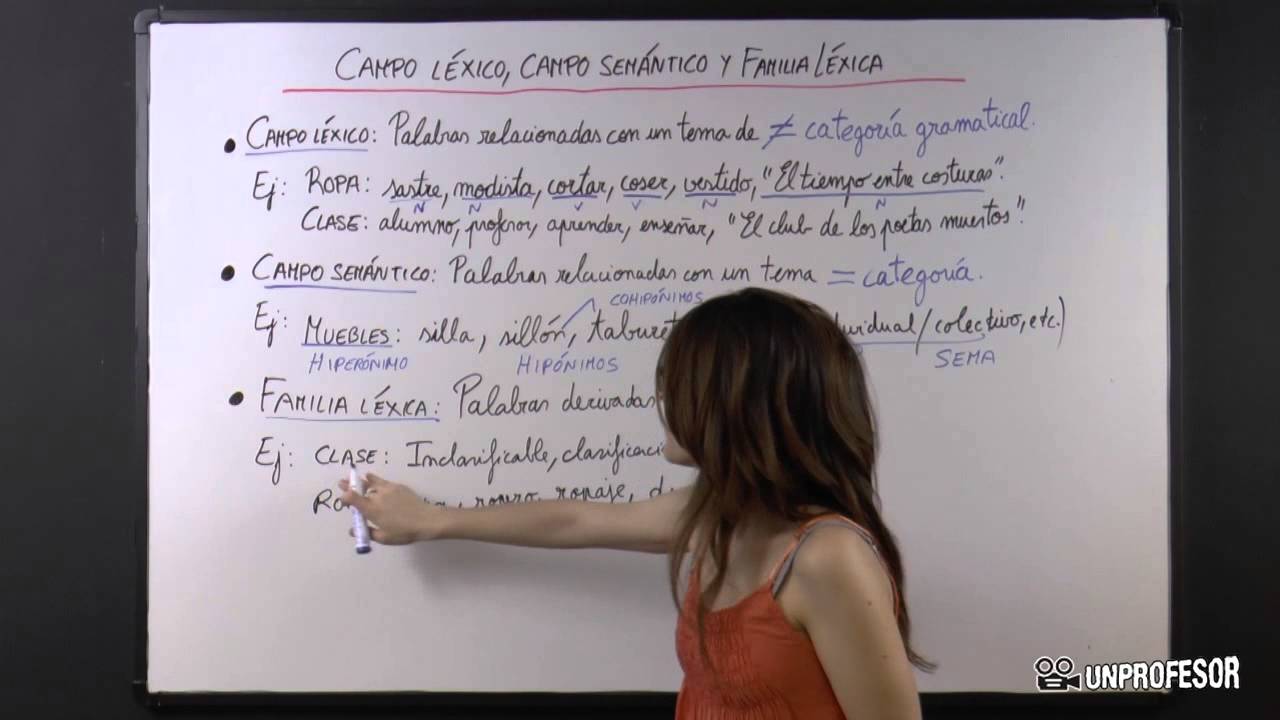 CAMPO LÉXICO, CAMPO SEMÁNTICO Y FAMILIA LÉXICA
• CAMPO LÉXICO: Palabras relacionadas con un tema de ≠ categoría gramatical.
Ej: ROPA: sastre, modista, cortar, coser, vestido, "El tiempo entre costuras".
N N V V N N
CLASE: alumno, profesor, aprender, enseñar, "El club de los poetas muertos".
• CAMPO SEMÁNTICO: Palabras relacionadas con un tema = categoría.
COHIPÓNIMOS
Ej: MUEBLES: silla, sillón, taburet /colectivo, etc.)
HIPERÓNIMO HIPÓNIMOS SEMA
• FAMILIA LÉXICA: Palabras derivadas
Ej: CLASE: Inclasificable, clasificaci
ropero, ropaje,
UNPROFESOR